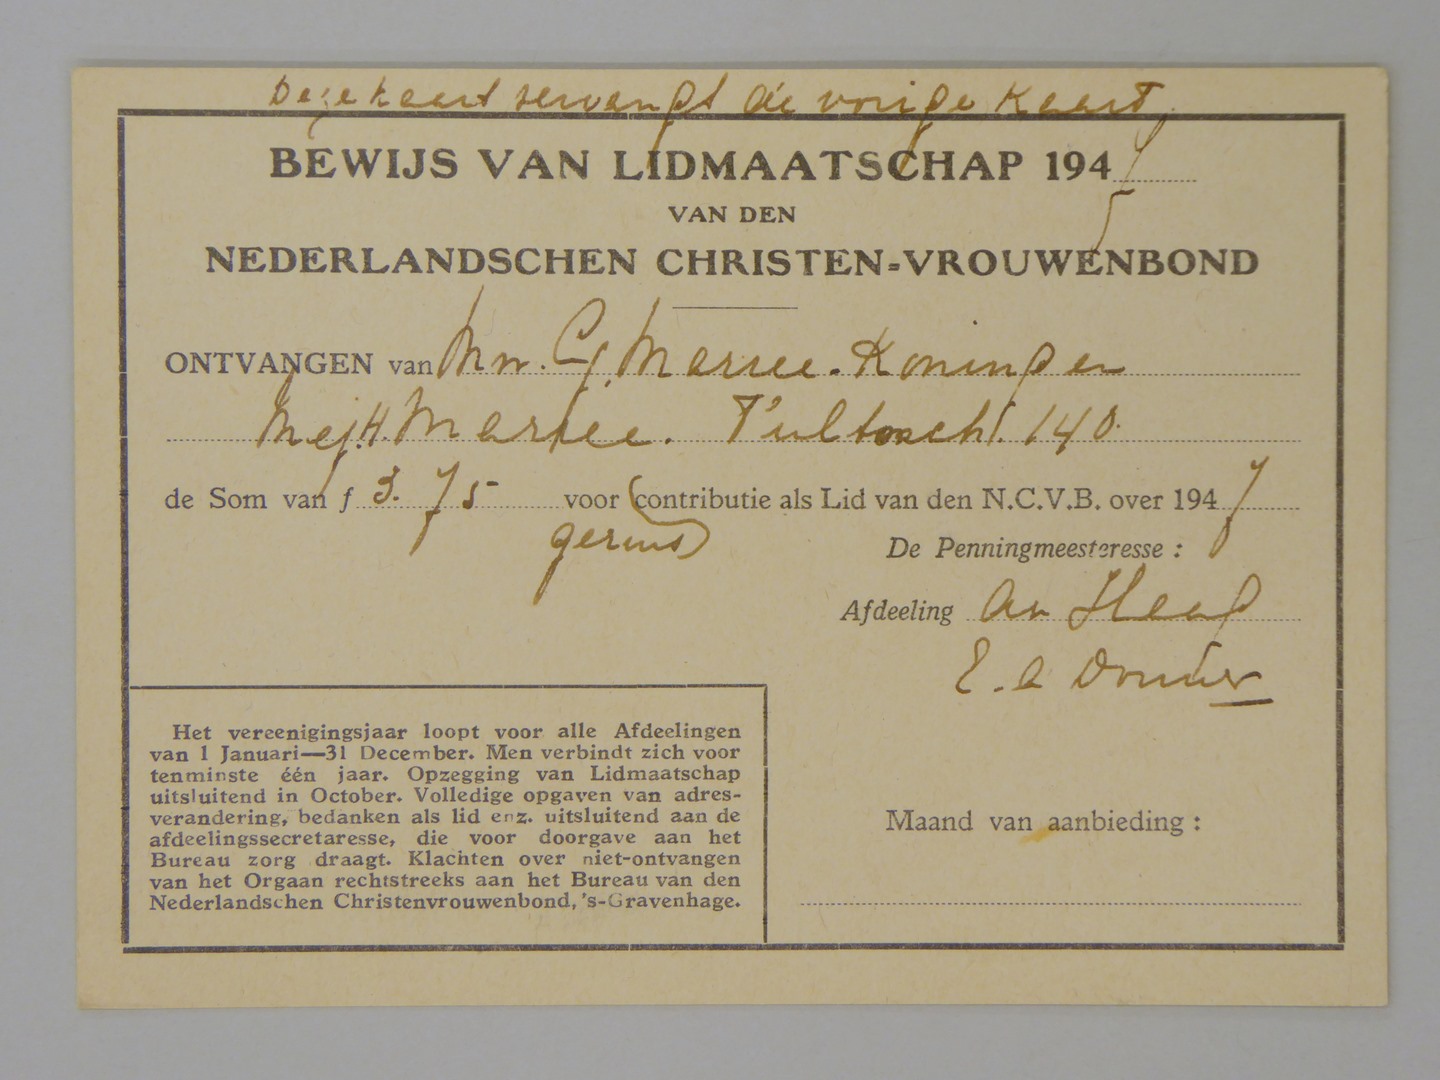 Deze kaart vervangt de vorige kaart.
BEWIJS VAN LIDMAATSCHAP 1947
VAN DEN
NEDERLANDSCHEN CHRISTEN-VROUWENBOND
ONTVANGEN van Mw. Marree-Koningen
Mej. H. Marree. 140
de Som van f 3.75 voor (contributie als Lid van den N.C.V.B. over 1947
De Penningmeesteresse :
Afdeeling
E. a
Het vereenigingsjaar loopt voor alle Afdeelingen
van 1 Januari—31 December. Men verbindt zich voor
tenminste één jaar. Opzegging van Lidmaatschap
uitsluitend in October. Volledige opgaven van adres-
verandering, bedanken als lid enz. uitsluitend aan de
afdeelingssecretaresse, die voor doorgave aan het
Bureau zorg draagt. Klachten over niet-ontvangen
van het Orgaan rechtstreeks aan het Bureau van den
Nederlandschen Christenvrouwenbond, 's-Gravenhage.
Maand van aanbieding :